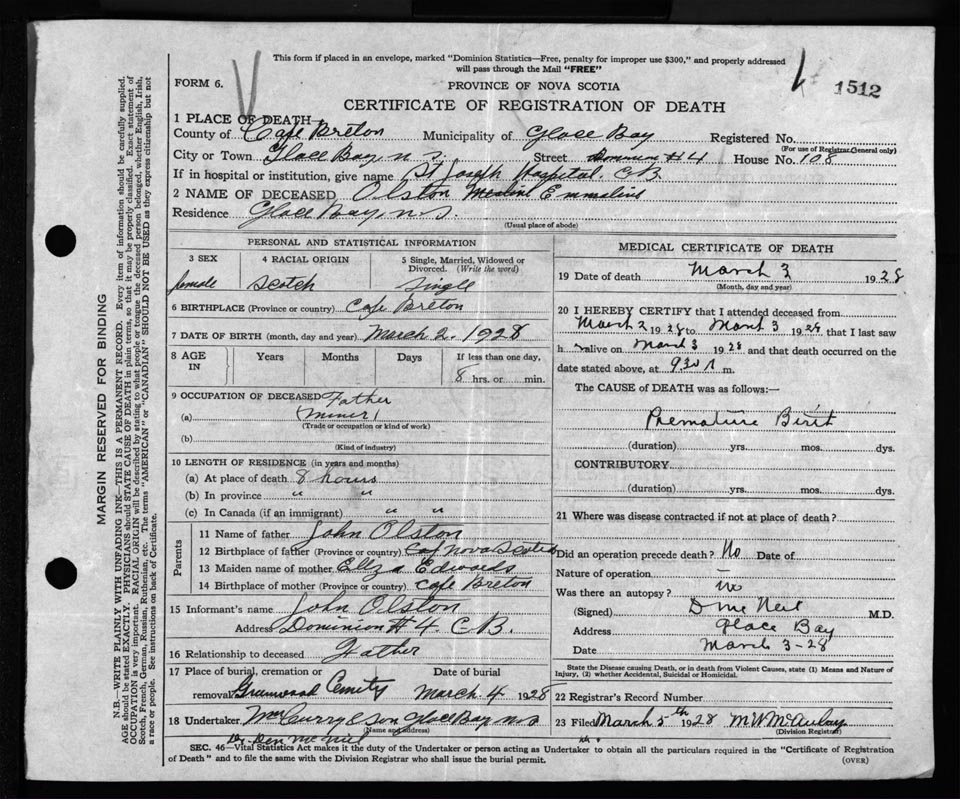 This form if placed in an envelope, marked "Dominion Statistics—Free, penalty for improper use $300," and properly addressed
will pass through the Mail "FREE"
FORM 6.
PROVINCE OF NOVA SCOTIA
1512
CERTIFICATE OF REGISTRATION OF DEATH
1 PLACE OF DEATH
County of Cape Breton Municipality of Glace Bay Registered No.
(For use of Registrar General only)
City or Town Glace Bay N S. Street Dominion #4 House No. 108
If in hospital or institution, give name St Joseph Hospital, CB
2 NAME OF DECEASED Olston Emmelius
Residence Glace Bay, N.S.
(Usual place of abode)
PERSONAL AND STATISTICAL INFORMATION
3 SEX 4 RACIAL ORIGIN 5 Single, Married, Widowed or Divorced. (Write the word)
female Scotch Single
6 BIRTHPLACE (Province or country) Cape Breton
7 DATE OF BIRTH (month, day and year) March 2. 1928
8 AGE IN Years Months Days If less than one day,
8 hrs. or min.
9 OCCUPATION OF DECEASED Father
(a) Miner
(Trade or occupation or kind of work)
(b)
(Kind of industry)
10 LENGTH OF RESIDENCE (in years and months)
(a) At place of death 8 hours
(b) In province " "
(c) In Canada (if an immigrant) " "
Parents
11 Name of father John Olston
12 Birthplace of father (Province or country) Nova Scotia
13 Maiden name of mother Eliza Edwards
14 Birthplace of mother (Province or country) Cape Breton
15 Informant's name John Olston
Address Dominion #4. C.B.
16 Relationship to deceased Father
17 Place of burial, cremation or removal Greenwood Cemity Date of burial March 4 1928
18 Undertaker McCurry & Son Glace Bay N.S
(Name and address)
MEDICAL CERTIFICATE OF DEATH
19 Date of death March 3 1928
(Month, day and year)
20 I HEREBY CERTIFY that I attended deceased from
March 2 1928 to March 3 1928 that I last saw
h alive on March 3 1928 and that death occurred on the
date stated above, at 9.30 m.
The CAUSE of DEATH was as follows:—
Premature Birth
(duration) yrs. mos. dys.
CONTRIBUTORY
(duration) yrs. mos. dys.
21 Where was disease contracted if not at place of death?
Did an operation precede death? No Date of
Nature of operation —
Was there an autopsy? no
(Signed) D McNeil M.D.
Address Glace Bay
Date March 3-28
State the Disease causing Death, or in death from Violent Causes, state (1) Means and Nature of Injury, (2) whether Accidental, Suicidal or Homicidal.
22 Registrar's Record Number
23 Filed March 5th 1928 M W McAulay
(Division Registrar)
SEC. 46—Vital Statistics Act makes it the duty of the Undertaker or person acting as Undertaker to obtain all the particulars required in the "Certificate of Registration
of Death" and to file the same with the Division Registrar who shall issue the burial permit.
(OVER)
MARGIN RESERVED FOR BINDING
N.B.—WRITE PLAINLY WITH UNFADING INK—THIS IS A PERMANENT RECORD. Every item of information should be carefully supplied.
AGE should be stated EXACTLY. PHYSICIANS should STATE CAUSE OF DEATH in plain terms, so that it may be properly classified. Exact statement of
OCCUPATION is very important. RACIAL ORIGIN will be described by stating to what people or tongue the deceased person belonged, whether English, Irish,
Scotch, French, German, Russian, Ruthenian, etc. The terms "AMERICAN" or "CANADIAN" SHOULD NOT BE USED as they express citizenship but not
a race or people. See instructions on back of Certificate.